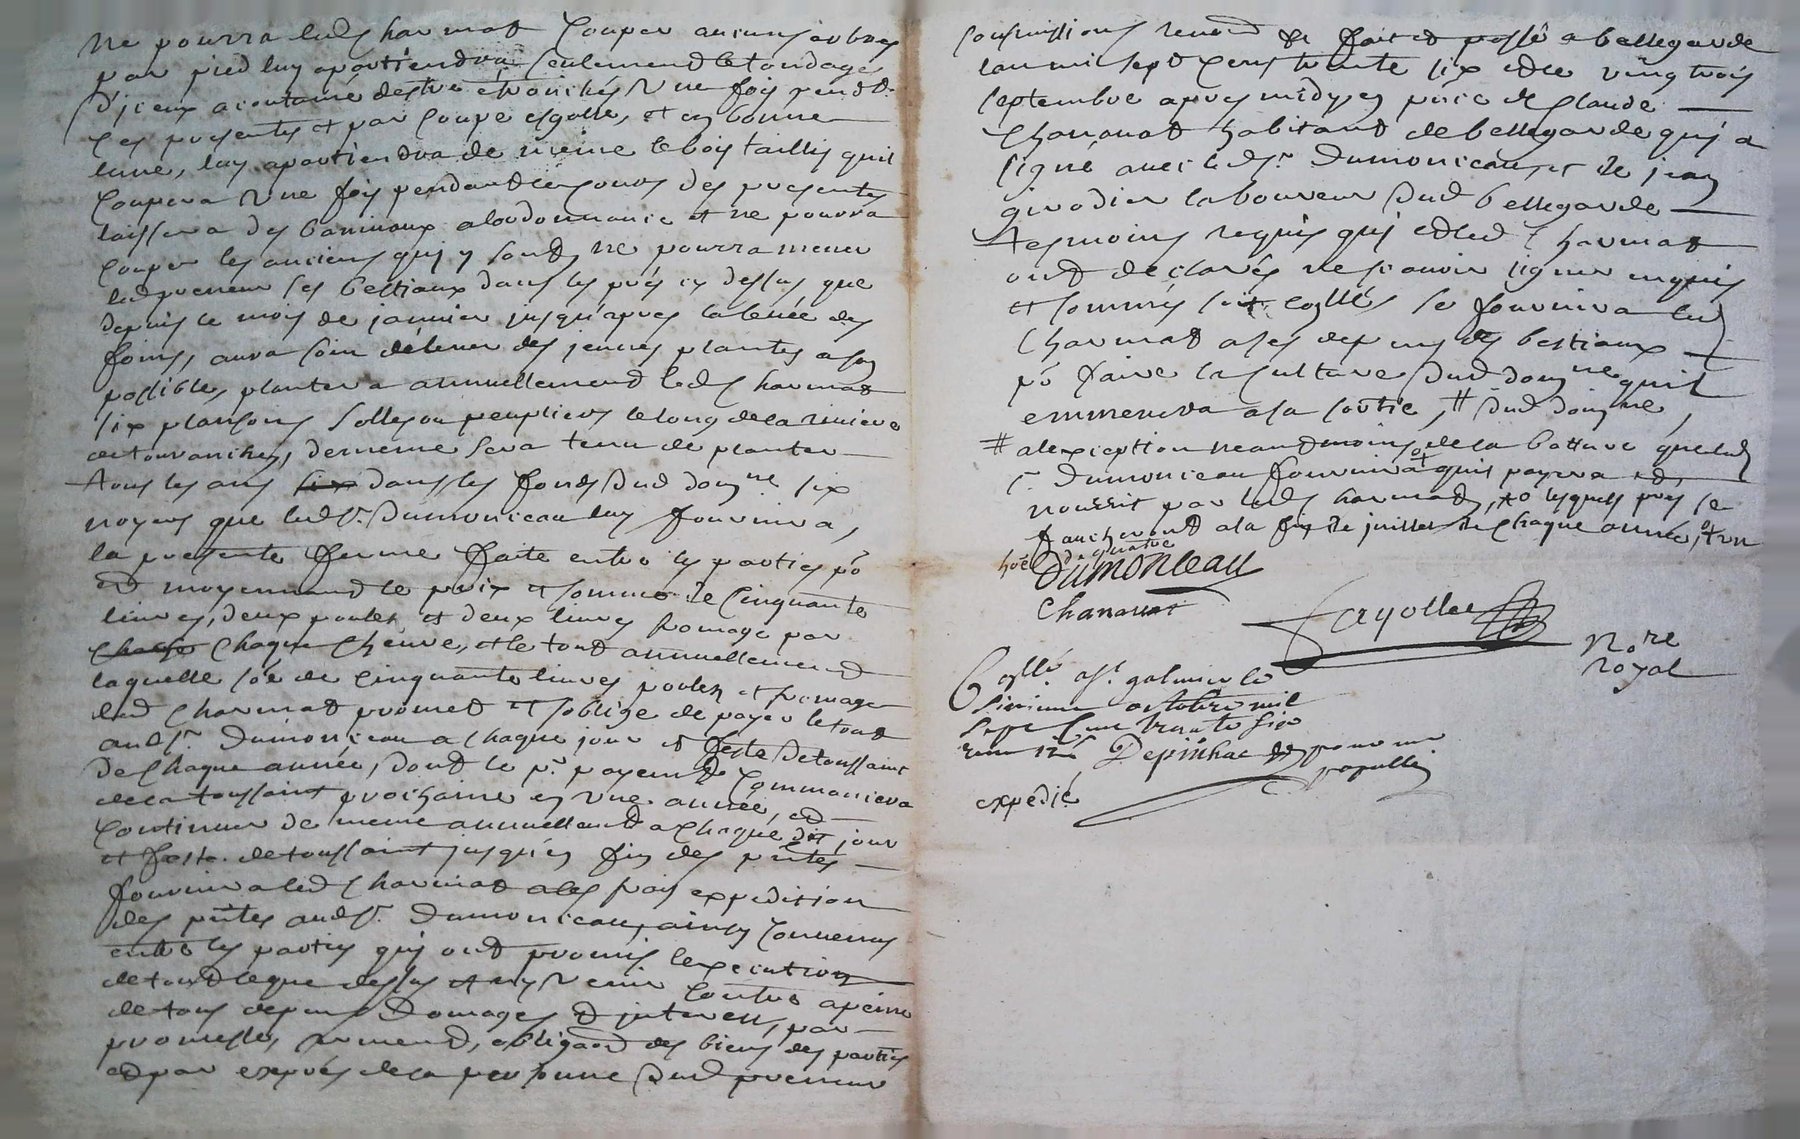 ne pourra led Charmat Couper aucuns arbres
par pied luy apartiendra seulement le tondage
d'jceux acoutume destre ébranchés Une fois pendt
Ces presentes et par Coupe esgalle, et en bonne
lune, luy apartiendra de meme le bois taillis quil
Coupera Une fois pendant le cours des presentes
laissera des baniveaux a lordonnance et ne pourra
Couper les anciens quj y sont, ne pourra mener
led preneur ses bestiaux dans les prés cy dessus que
depuis le mois de janvier jusqu'apres la levée des
foins, aura soin délever des jeunes plantes a son
possible, plantera annuellement led Charmat
six plansons solles ou peupliers le long de la riviere
de touranchey, de meme sera tenu de planter
tous les ans six dans les fonds dud domne six
noyers que led sr. Dumonceau luy fournira,
la presente ferme faite entre les parties po
et moyennant le prix et somme de Cinquante
livres, deux poules et deux livres fromage par
Chasse Chaque Cheuvre, et le tout annuellement
laquelle soe de Cinquante livres poules et fromage
led Charmat promet et soblige de payer le tout
aud sr. Dumonceau a Chaque jour et feste de toussaint
de Chaque année, dont le pr. payemt Commancera
de la toussaint prochaine en Une année, et
Continuer de meme annuellemt a Chaque dit jour
et feste de toussaint jusqu'en fin des pntes
fournira led Charmat a ses frais expedition
des pntes aud sr. Dumonceau, ainsy Convenus
entre les parties quj ont promis lexecution
de tout le que dessus et ny Venir Contre a peine
de tous depens Domages et jnterests, par
promesse, serment, obligaon des biens des parties
et par exprés de la personne dud preneur
soumissions renond &c fait et passé a bellegarde
lan mil sept Cens trente six et le vingt trois
septembre apres midy, en pnce de Claude
Chanavat habitant de bellegarde quj a
signé avec led sr. Dumonceau et de jean
girodier laboureur dud bellegarde
tesmoins requis quj et led Charmat
ont déclarés ne scavoir signer enquis
et sommés soit collés se fournira led
Charmat a ses depens des bestiaux
po faire la Culture dud domne quil
emmenera a sa sortie, # dud domne,
# a lexception neantmoins de la batture que led
sr Dumonceau fournira et quil payera et
nourrit par led Charmat, lesquels prés se
faucheront a la fin de juillet de Chaque année,
Dumonceau
Chanavat
Fayolle
Nore
royal
Collé a st. galmier le
octobre mil
sept Cens trente six
Depinhac
expedié